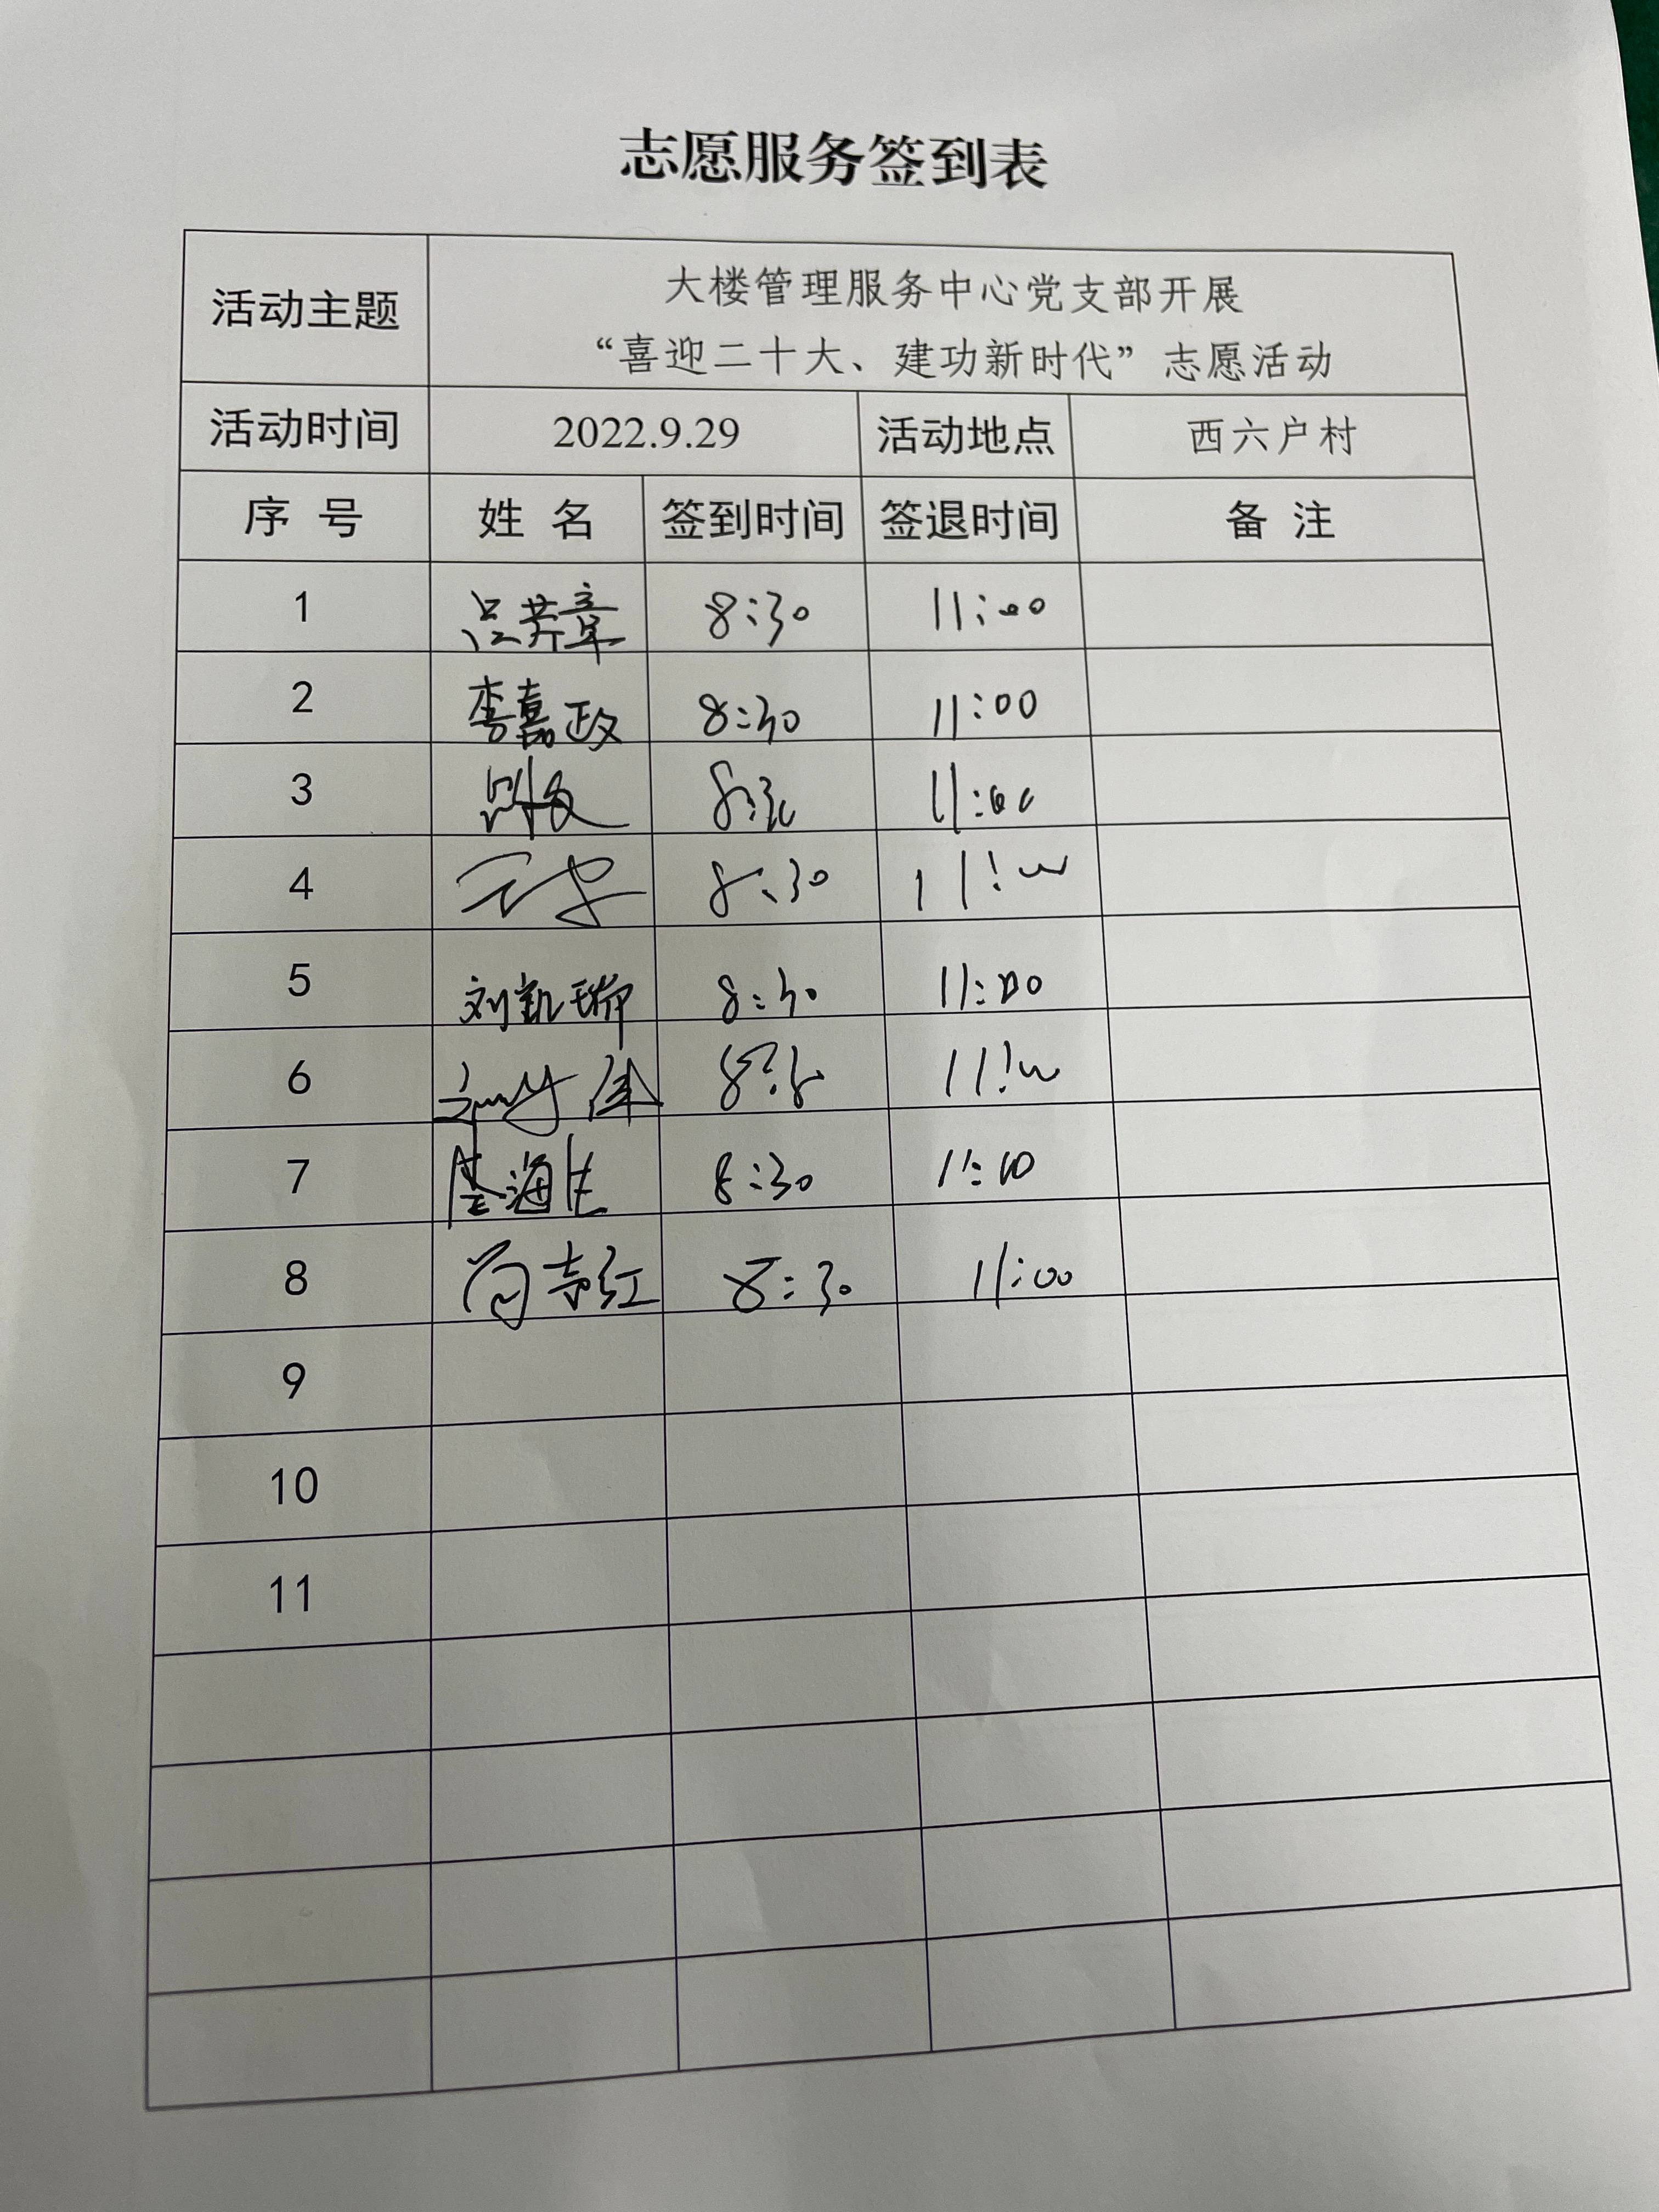 志愿服务签到表
活动主题
大楼管理服务中心党支部开展
“喜迎二十大、建功新时代”志愿活动
活动时间 2022.9.29 活动地点 西六户村
序 号 姓 名 签到时间 签退时间 备 注
1 8:30 11:00
2 李嘉政 8:30 11:00
3 8:30 11:00
4 8:30 11:00
5 刘凯瑞 8:30 11:00
6 11:00
7 8:30 11:00
8 8:30 11:00
9
10
11